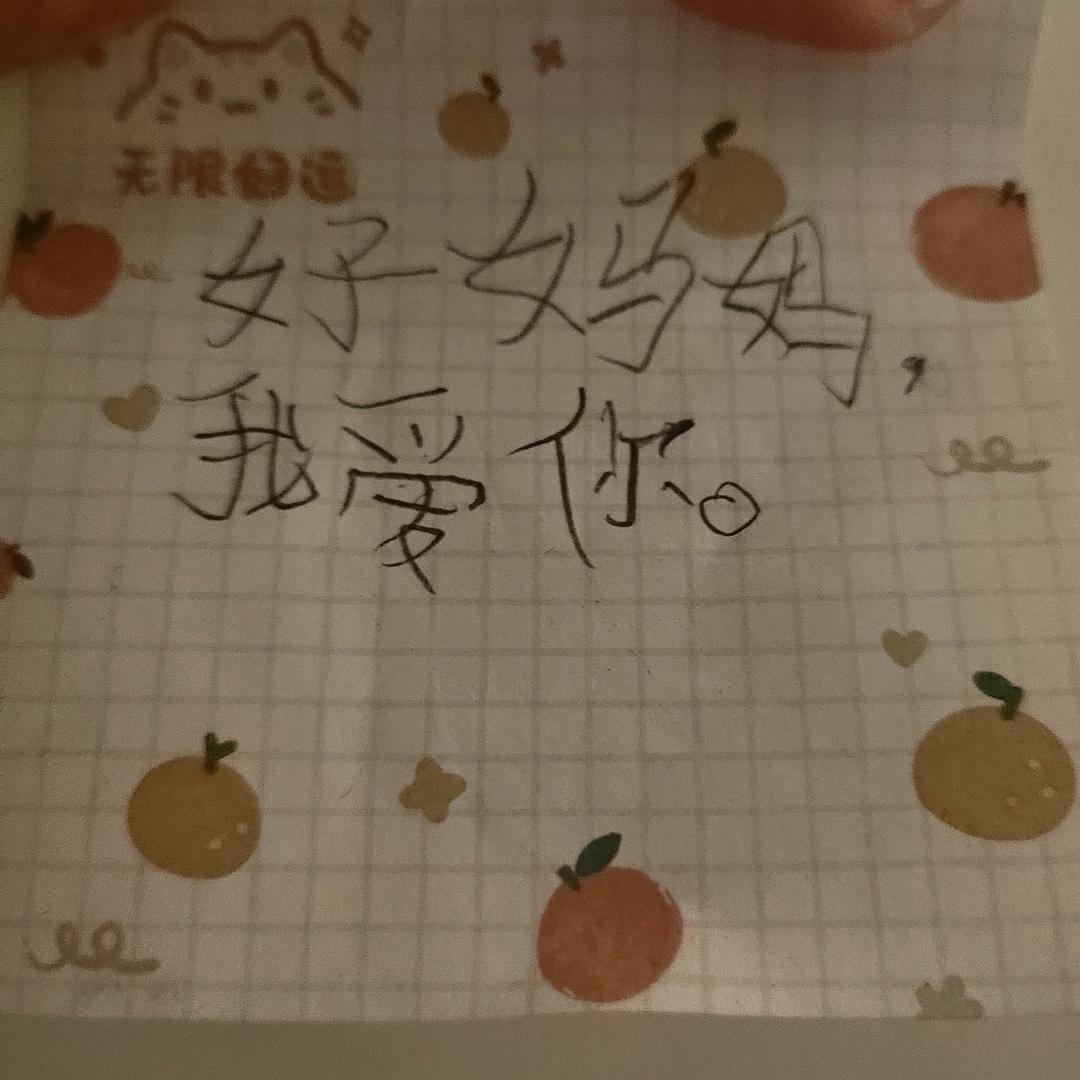 无限好运
好妈妈，
我爱你。